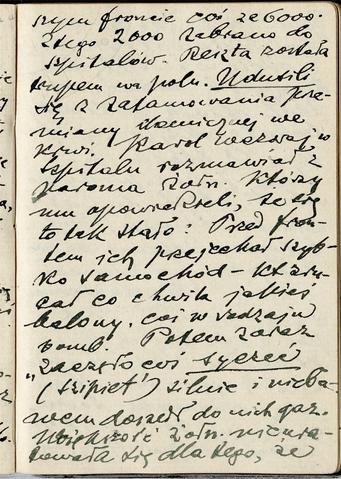 szym froncie coś ze 6000.
Z tego 2000 zabrano do
szpitalów. Reszta została
trupem na polu. Udusili
się z zatamowania prze-
miany tlenicznej we
krwi. Karol wczoraj w
szpitalu rozmawiał z
paroma żołn. którzy
mu opowiedzieli, że się
to tak stało: Przed fron-
tem ich przejechał szyb-
ko samochód – któ rzu-
cał co chwila jakieś
balony, coś w rodzaju
bomb. Potem zaraz
"zaczęło coś syczeć
(szipieť) silnie i nieba-
wem doszedł do nich gaz.
Większość żołn. nie ura-
towała się dla tego, że